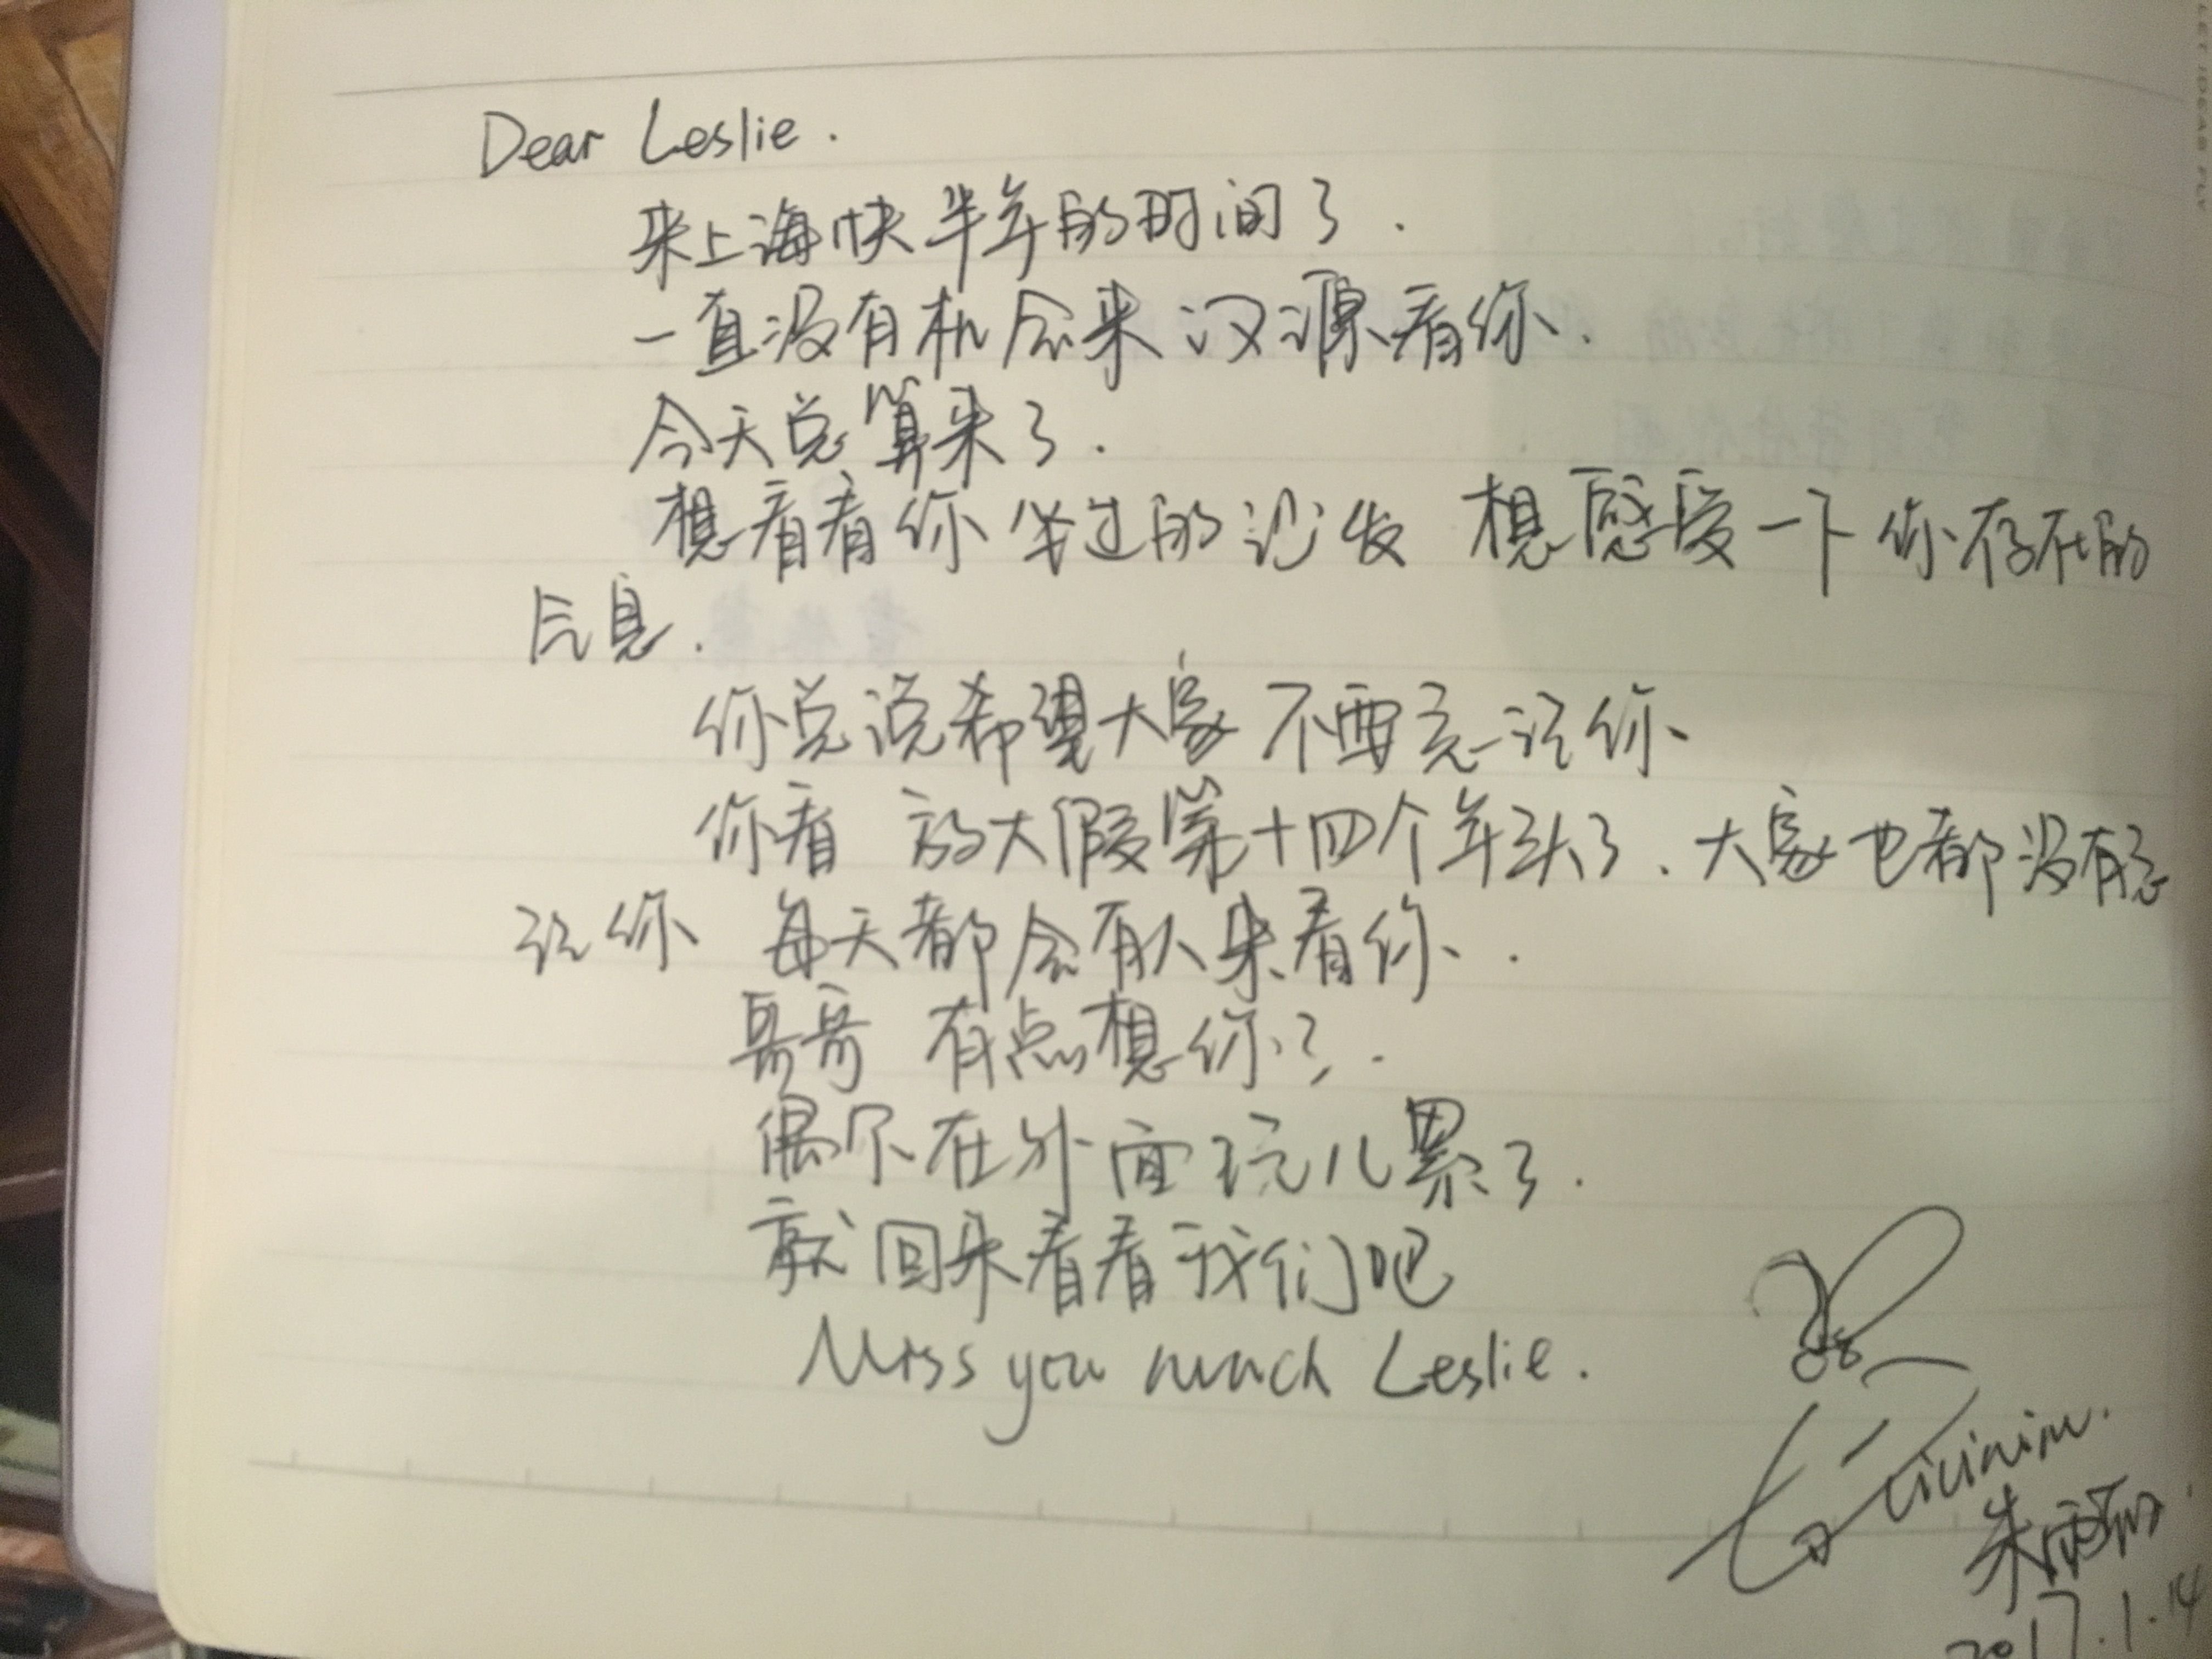 Dear Leslie.
来上海快半年的时间了.
一直没有机会来汉源看你.
今天总算来了.
想看看你坐过的沙发 想感受一下你存在的
气息.
你总说希望大家不要忘记你
你看 放大假第十四个年头了.大家也都没有忘
记你 每天都会有人来看你.
哥哥 有点想你了.
偶尔在外面玩儿累了.
就回来看看我们吧
Miss you much Leslie.
2017.1.14